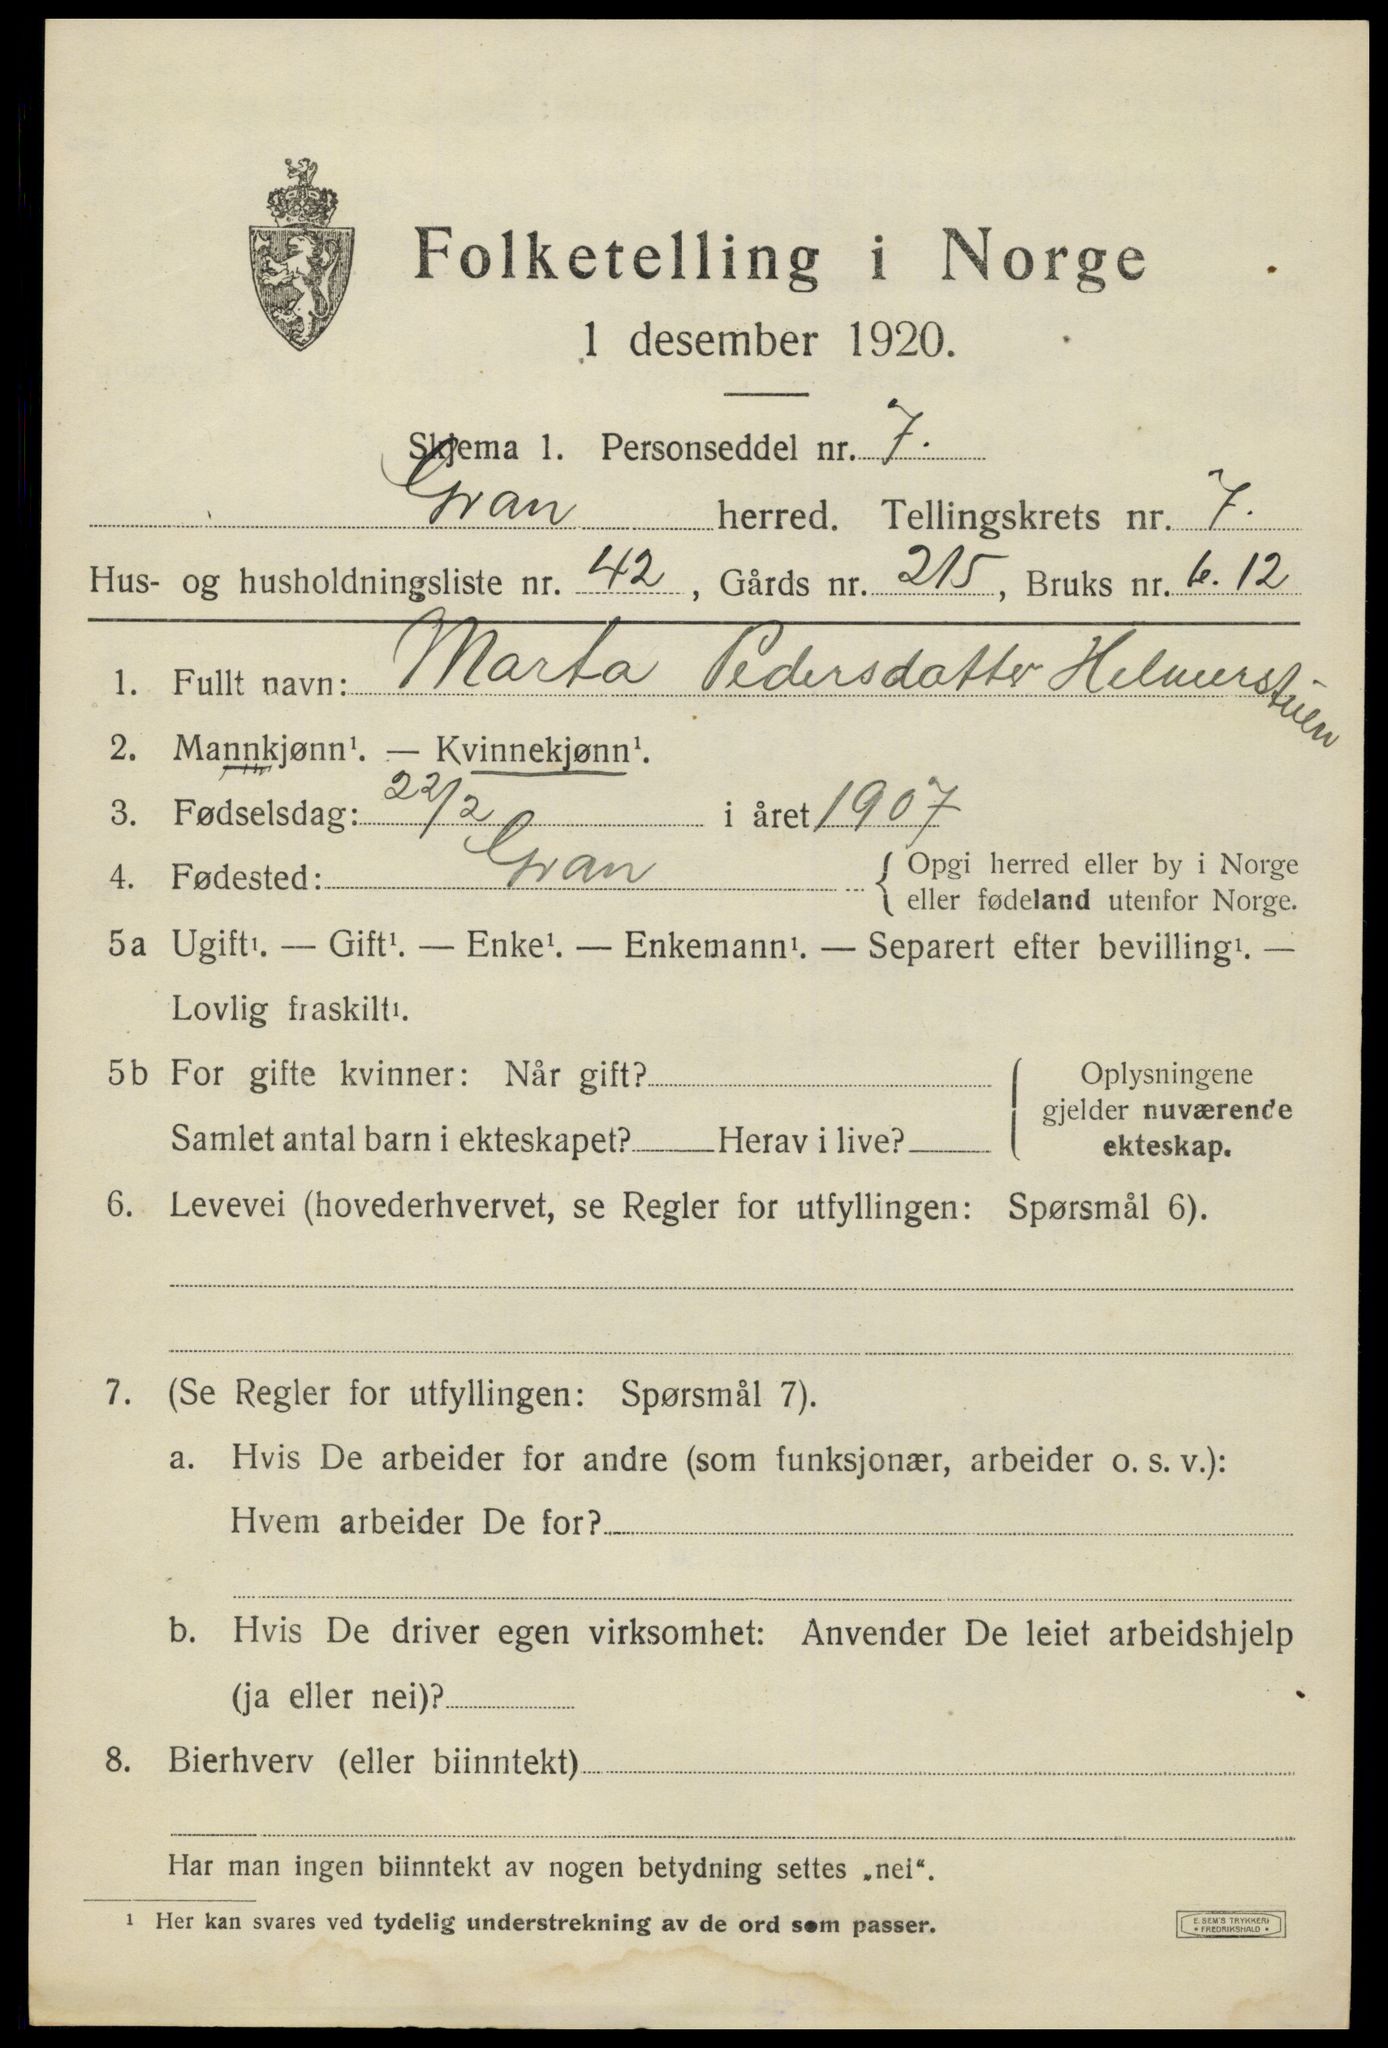 Folketelling i Norge
1 desember 1920.
Skjema 1. Personseddel nr. 7.
Gran herred. Tellingskrets nr. 7.
Hus- og husholdningsliste nr. 42, Gårds nr. 215, Bruks nr. 6. 12
1. Fullt navn: Marta Pedersdatter Helmerstuen
2. Mannkjønn¹. — Kvinnekjønn¹.
3. Fødselsdag: 22/2 i året 1907
4. Fødested: Gran { Opgi herred eller by i Norge
eller fødeland utenfor Norge.
5a Ugift¹. — Gift¹. — Enke¹. — Enkemann¹. — Separert efter bevilling¹. —
Lovlig fraskilt¹.
5b For gifte kvinner: Når gift?
Samlet antal barn i ekteskapet? Herav i live?
Oplysningene
gjelder nuværende
ekteskap.
6. Levevei (hovederhvervet, se Regler for utfyllingen: Spørsmål 6).
7. (Se Regler for utfyllingen: Spørsmål 7).
a. Hvis De arbeider for andre (som funksjonær, arbeider o. s. v.):
Hvem arbeider De for?
b. Hvis De driver egen virksomhet: Anvender De leiet arbeidshjelp
(ja eller nei)?
8. Bierhverv (eller biinntekt)
Har man ingen biinntekt av nogen betydning settes „nei“.
¹ Her kan svares ved tydelig understrekning av de ord som passer.
E. SEM'S TRYKKERI
* FREDRIKSHALD *